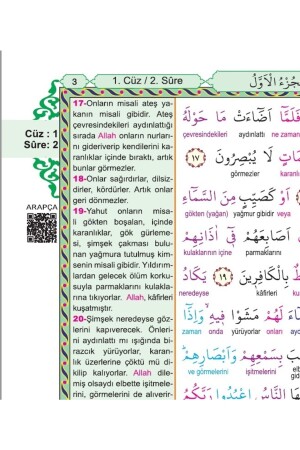 3
1. Cüz / 2. Sûre
جُزْءُ الْاَوَّلُ
Cüz : 1
Sûre: 2
ARAPÇA
17-Onların misali ateş ya-
kanın misali gibidir. Ateş
çevresindekileri aydınlattığı
sırada Allah onların nurları-
nı gideriverip kendilerini ka-
ranlıklar içinde bıraktı, artık
bunlar görmezler.
18-Onlar sağırdırlar, dilsiz-
dirler, kördürler. Artık onlar
geri dönmezler.
19-Yahut onların misa-
li gökten boşalan, içinde
karanlıklar, gök gürleme-
si, şimşek çakması bulu-
nan yağmura tutulmuş kim-
senin misali gibidir. Yıldırım-
lardan gelecek ölüm korku-
suyla parmaklarını kulakla-
rına tıkıyorlar. Allah, kâfirleri
kuşatmıştır.
20-Şimşek neredeyse göz-
lerini kapıverecek. Önleri-
ni aydınlattı mı ışığında bi-
razcık yürüyorlar, karan-
lık üzerlerine çöktü mü di-
kilip kalıyorlar. Allah dile-
miş olsaydı elbette işitmele-
rini, görmelerini de alıverir-
فَلَمَّٓا اَضَٓاءَتْ مَا حَوْلَهُ
çevresindekileri aydınlattı ne zaman
لَا يُبْصِرُونَ ﴿١٧﴾
görmezler karanlık
اَوْ كَصَيِّبٍ مِنَ السَّمَٓاءِ
gökten (yağan) yağmur gibidir veya
اَصَابِعَهُمْ فِٓي اٰذَانِهِمْ
kulaklarının içine parmaklarını
بِالْكَافِرِينَ ﴿١٩﴾ يَكَادُ
neredeyse kâfirleri
لَهُمْ مَشَوْا فِيهِ وَاِذَٓا
zaman onda yürüyorlar onları
بِسَمْعِهِمْ وَاَبْصَارِهِمْ
ve görmelerini işitmelerini
النَّاسُ اعْبُدُوا رَبَّكُمُ